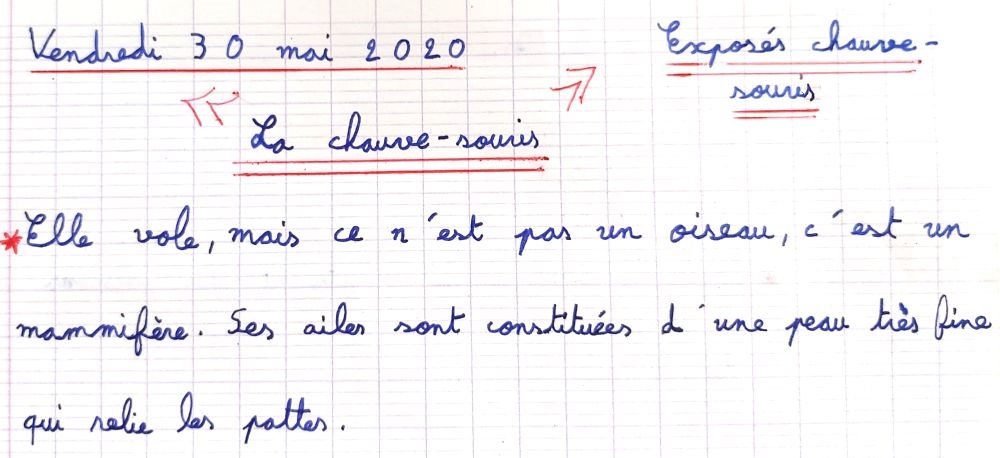 Vendredi 30 mai 2020
Exposés chauve-
souris
La chauve-souris
*Elle vole, mais ce n'est pas un oiseau, c'est un
mammifère. Ses ailes sont constituées d'une peau très fine
qui relie les pattes.